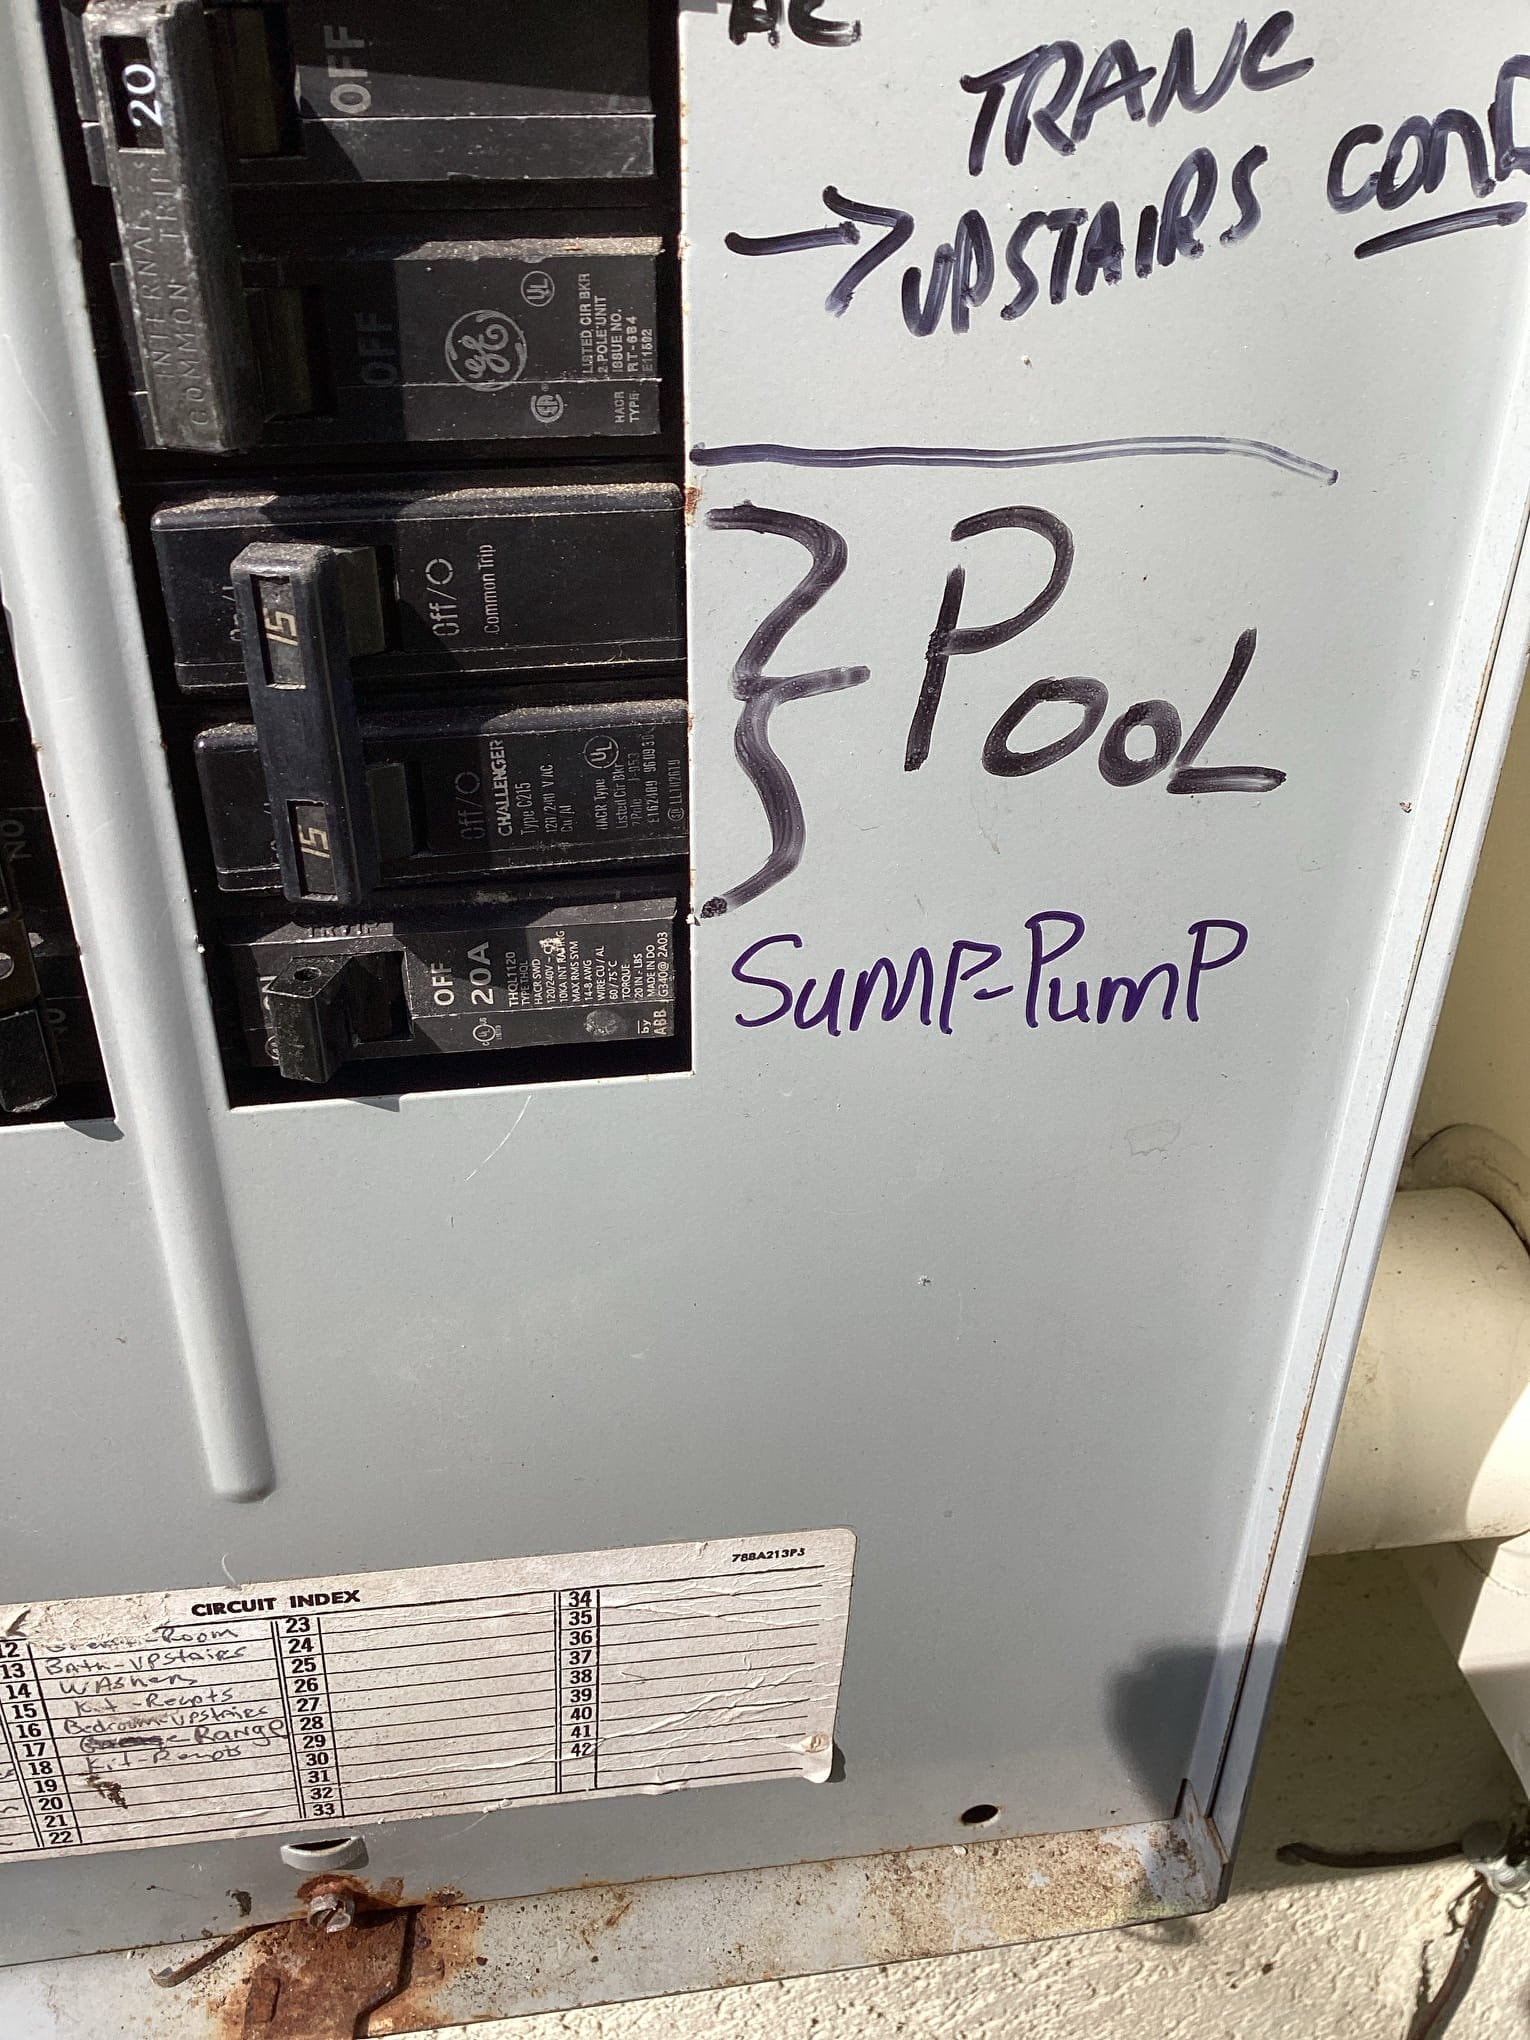 AC
TRANE
→ UPSTAIRS COND
20
OFF
INTERNAL
COMMON TRIP
OFF
GE
UL
LISTED CIR BKR
2 POLE UNIT
ISSUE NO.
RT-684
HACR
TYPE
POOL
15
Off/O
Common Trip
15
Off/O
CHALLENGER
Type C215
120/240 V AC
Cu/Al
HACR Type
UL
Listed Cir Bkr
2 Pole
SUMP-PUMP
ON
OFF
20A
THQL1120
TYPE THQL
HACR SWD
120/240V~
10KA INT RATING
MAX RMS SYM
14-8 AWG
WIRE CU/AL
60/75°C
TORQUE
20 IN-LBS
MADE IN DO
G340@ 2A03
by
ABB
NO
788A213P3
CIRCUIT INDEX
12 Room
13 Bath-Upstairs
14 Washer
15 Kit-Recpts
16 Bedroom-Upstairs
17 Range
18 Kit
19
20
21
22
23
24
25
26
27
28
29
30
31
32
33
34
35
36
37
38
39
40
41
42